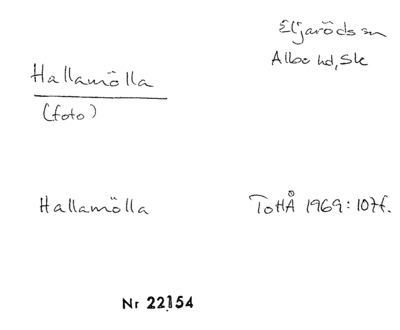 Eljaröds sn
Albo hd, Sk
Hallamölla
(foto)
Hallamölla
TotHÅ 1969: 107f.
Nr 22154